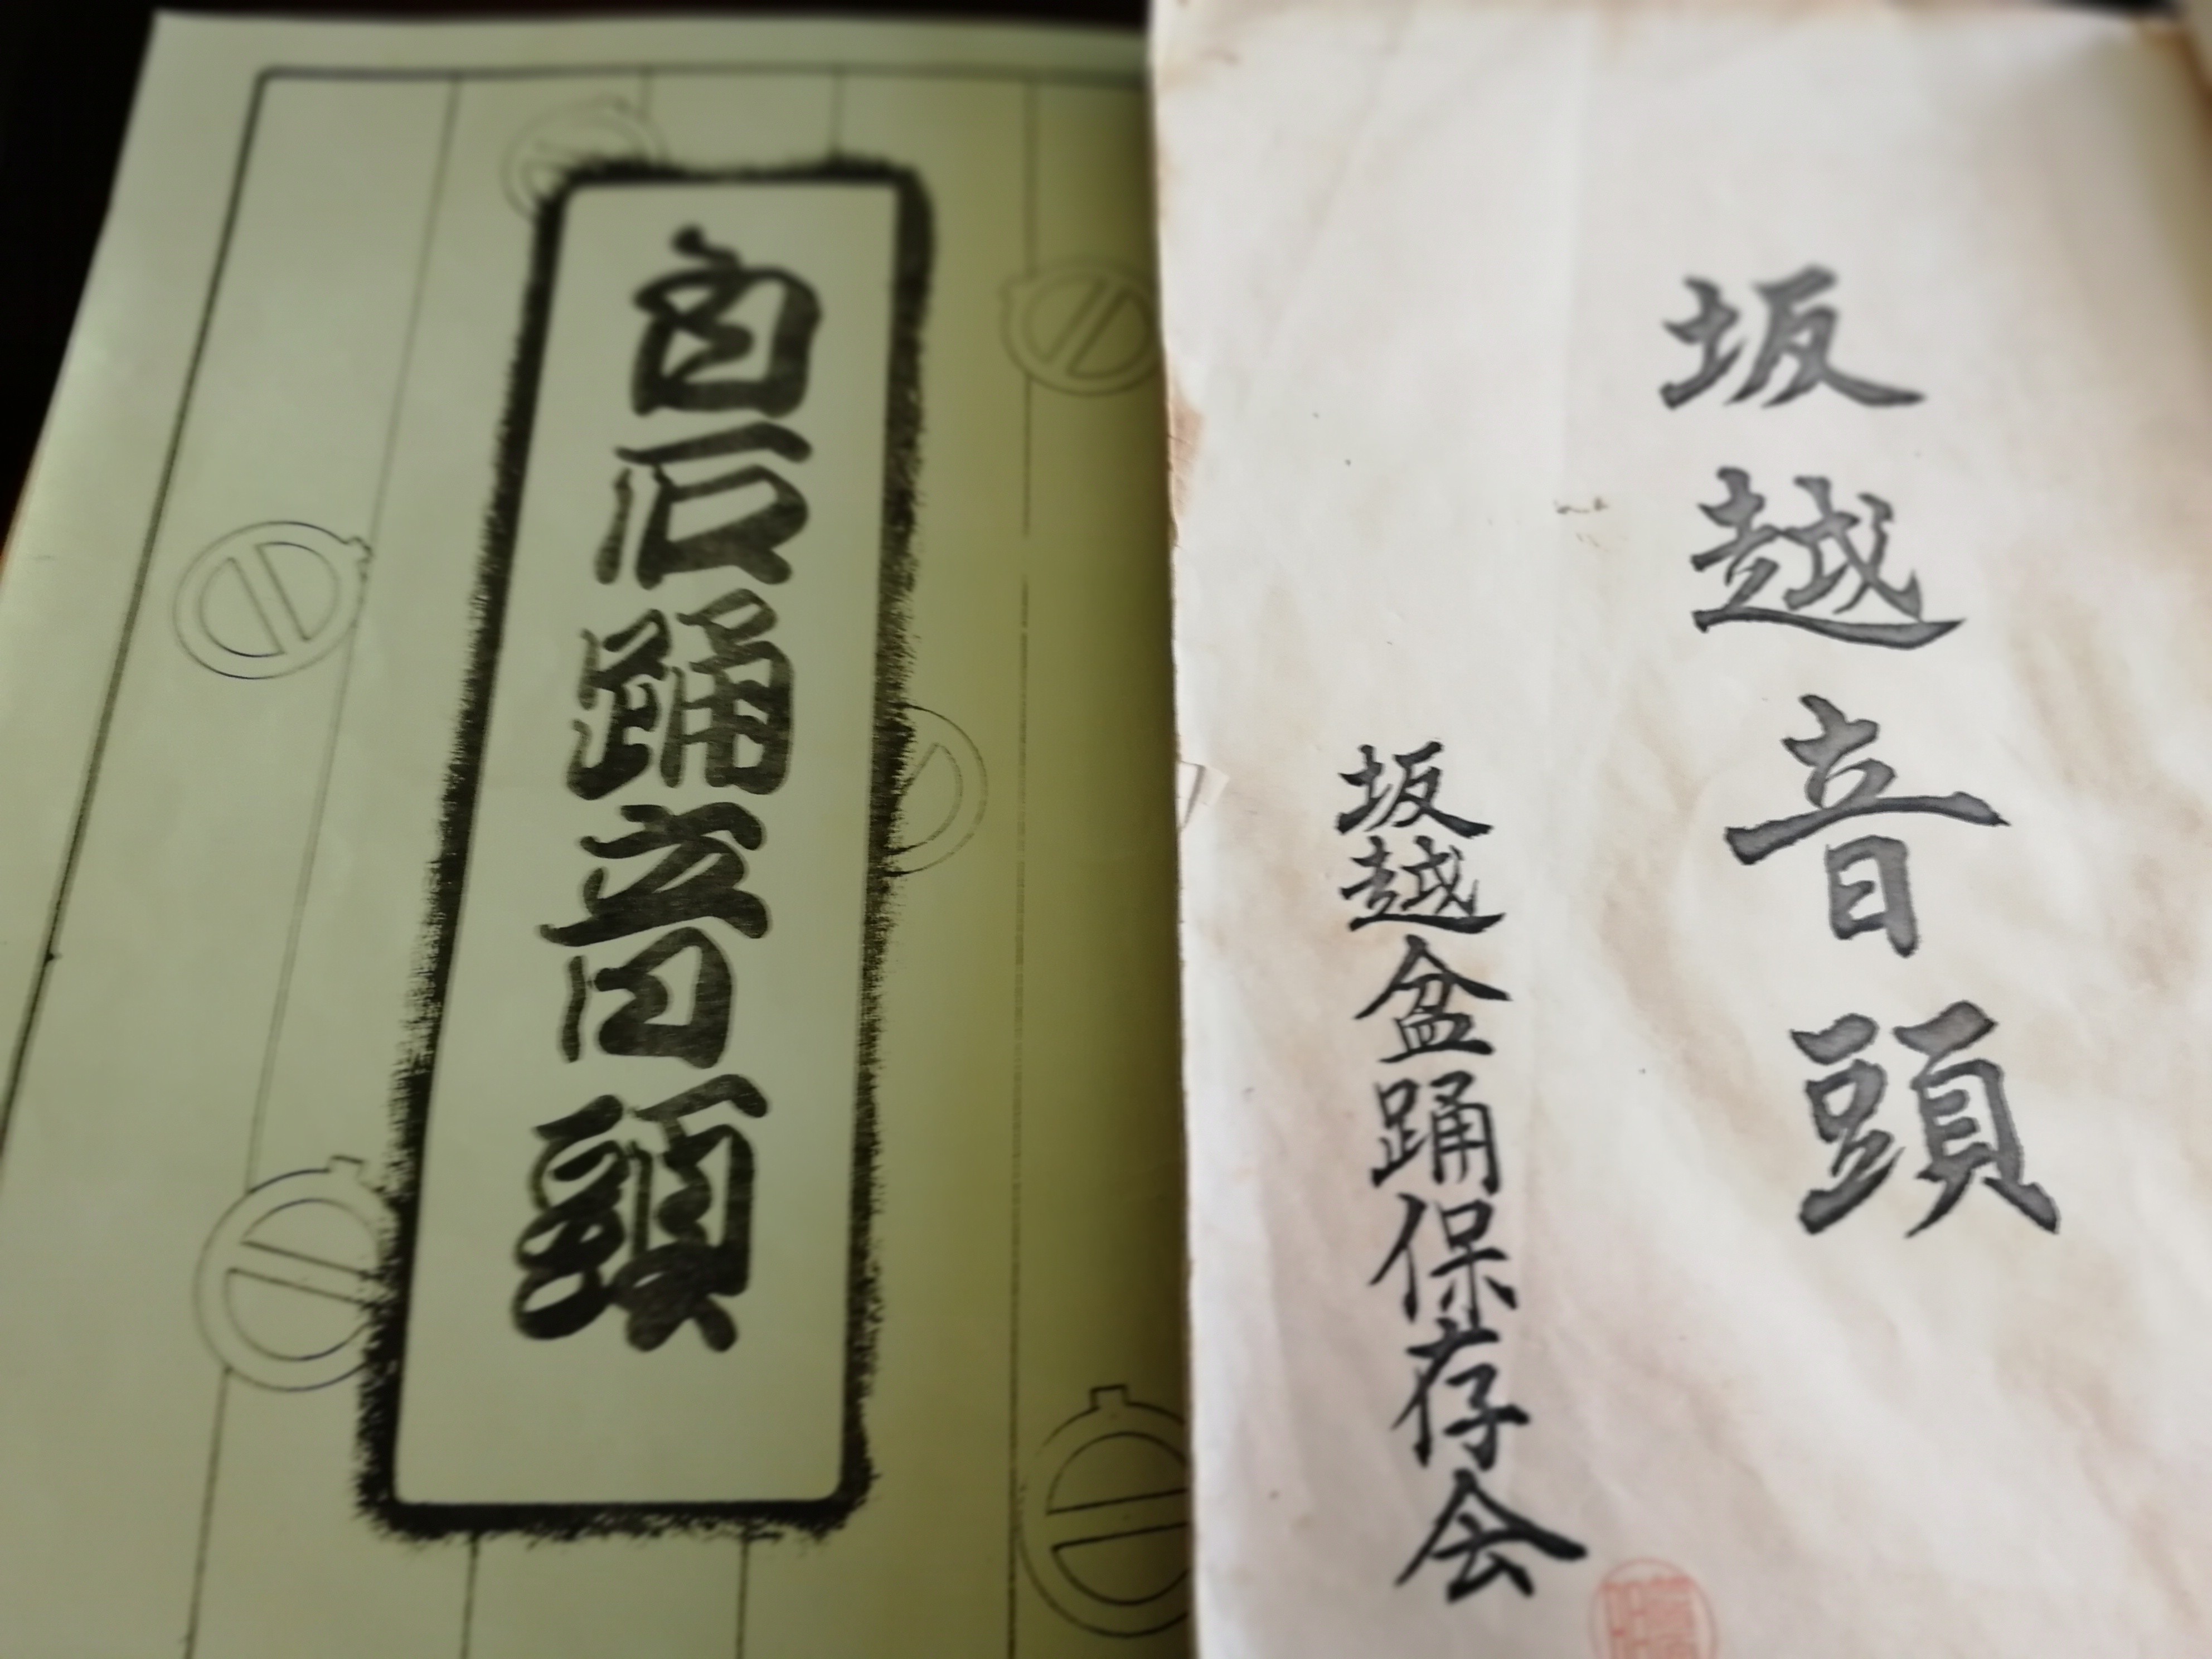 白石踊音頭
坂越音頭
坂越盆踊保存会